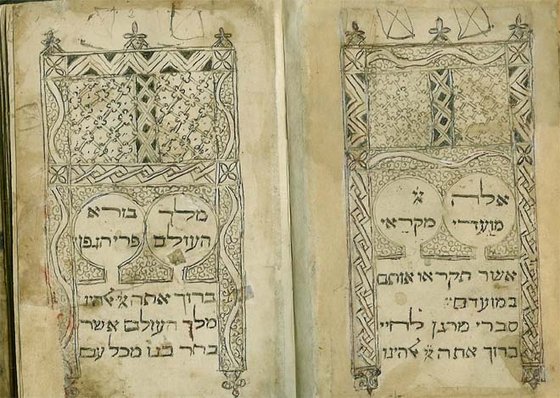 אלה
מועדי
יי
מקראי
אשר תקראו אותם
במועדם:
סברי מרנן לחיי
ברוך אתה יי אלהינו
מלך
העולם
בורא
פרי הגפן
ברוך אתה יי אלהינו
מלך העולם אשר
בחר בנו מכל עם